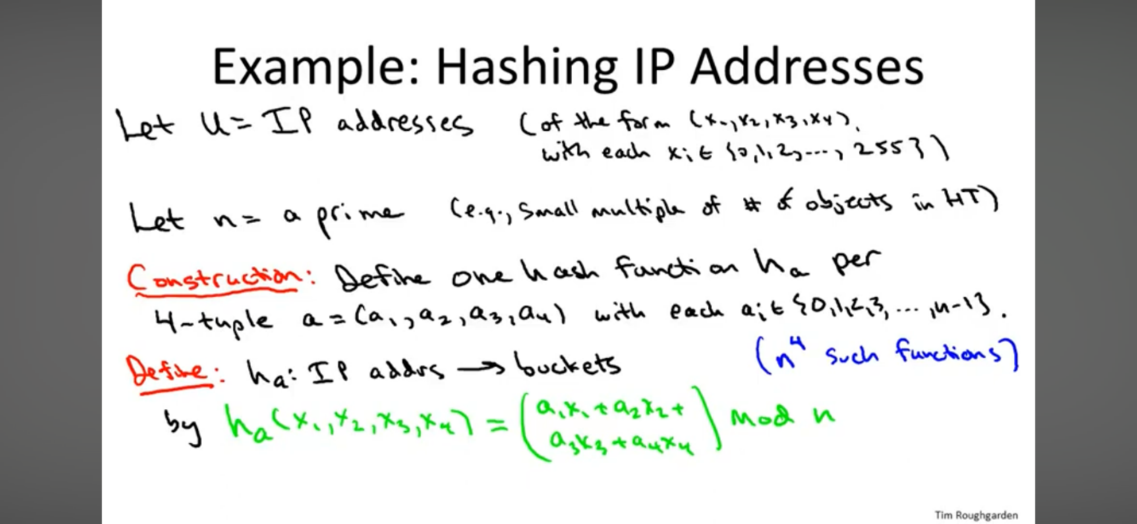 Example: Hashing IP Addresses
Let U = IP addresses (of the form (x₁,x₂,x₃,x₄),
with each xᵢ ∈ {0,1,2,...,255})
Let n = a prime (e.g., small multiple of # of objects in HT)
Construction: Define one hash function hₐ per
4-tuple a = (a₁,a₂,a₃,a₄) with each aᵢ ∈ {0,1,2,3,...,n-1}.
Define: hₐ: IP addrs → buckets (n⁴ such functions)
by hₐ(x₁,x₂,x₃,x₄) = (a₁x₁ + a₂x₂ +
a₃x₃ + a₄x₄) mod n
Tim Roughgarden